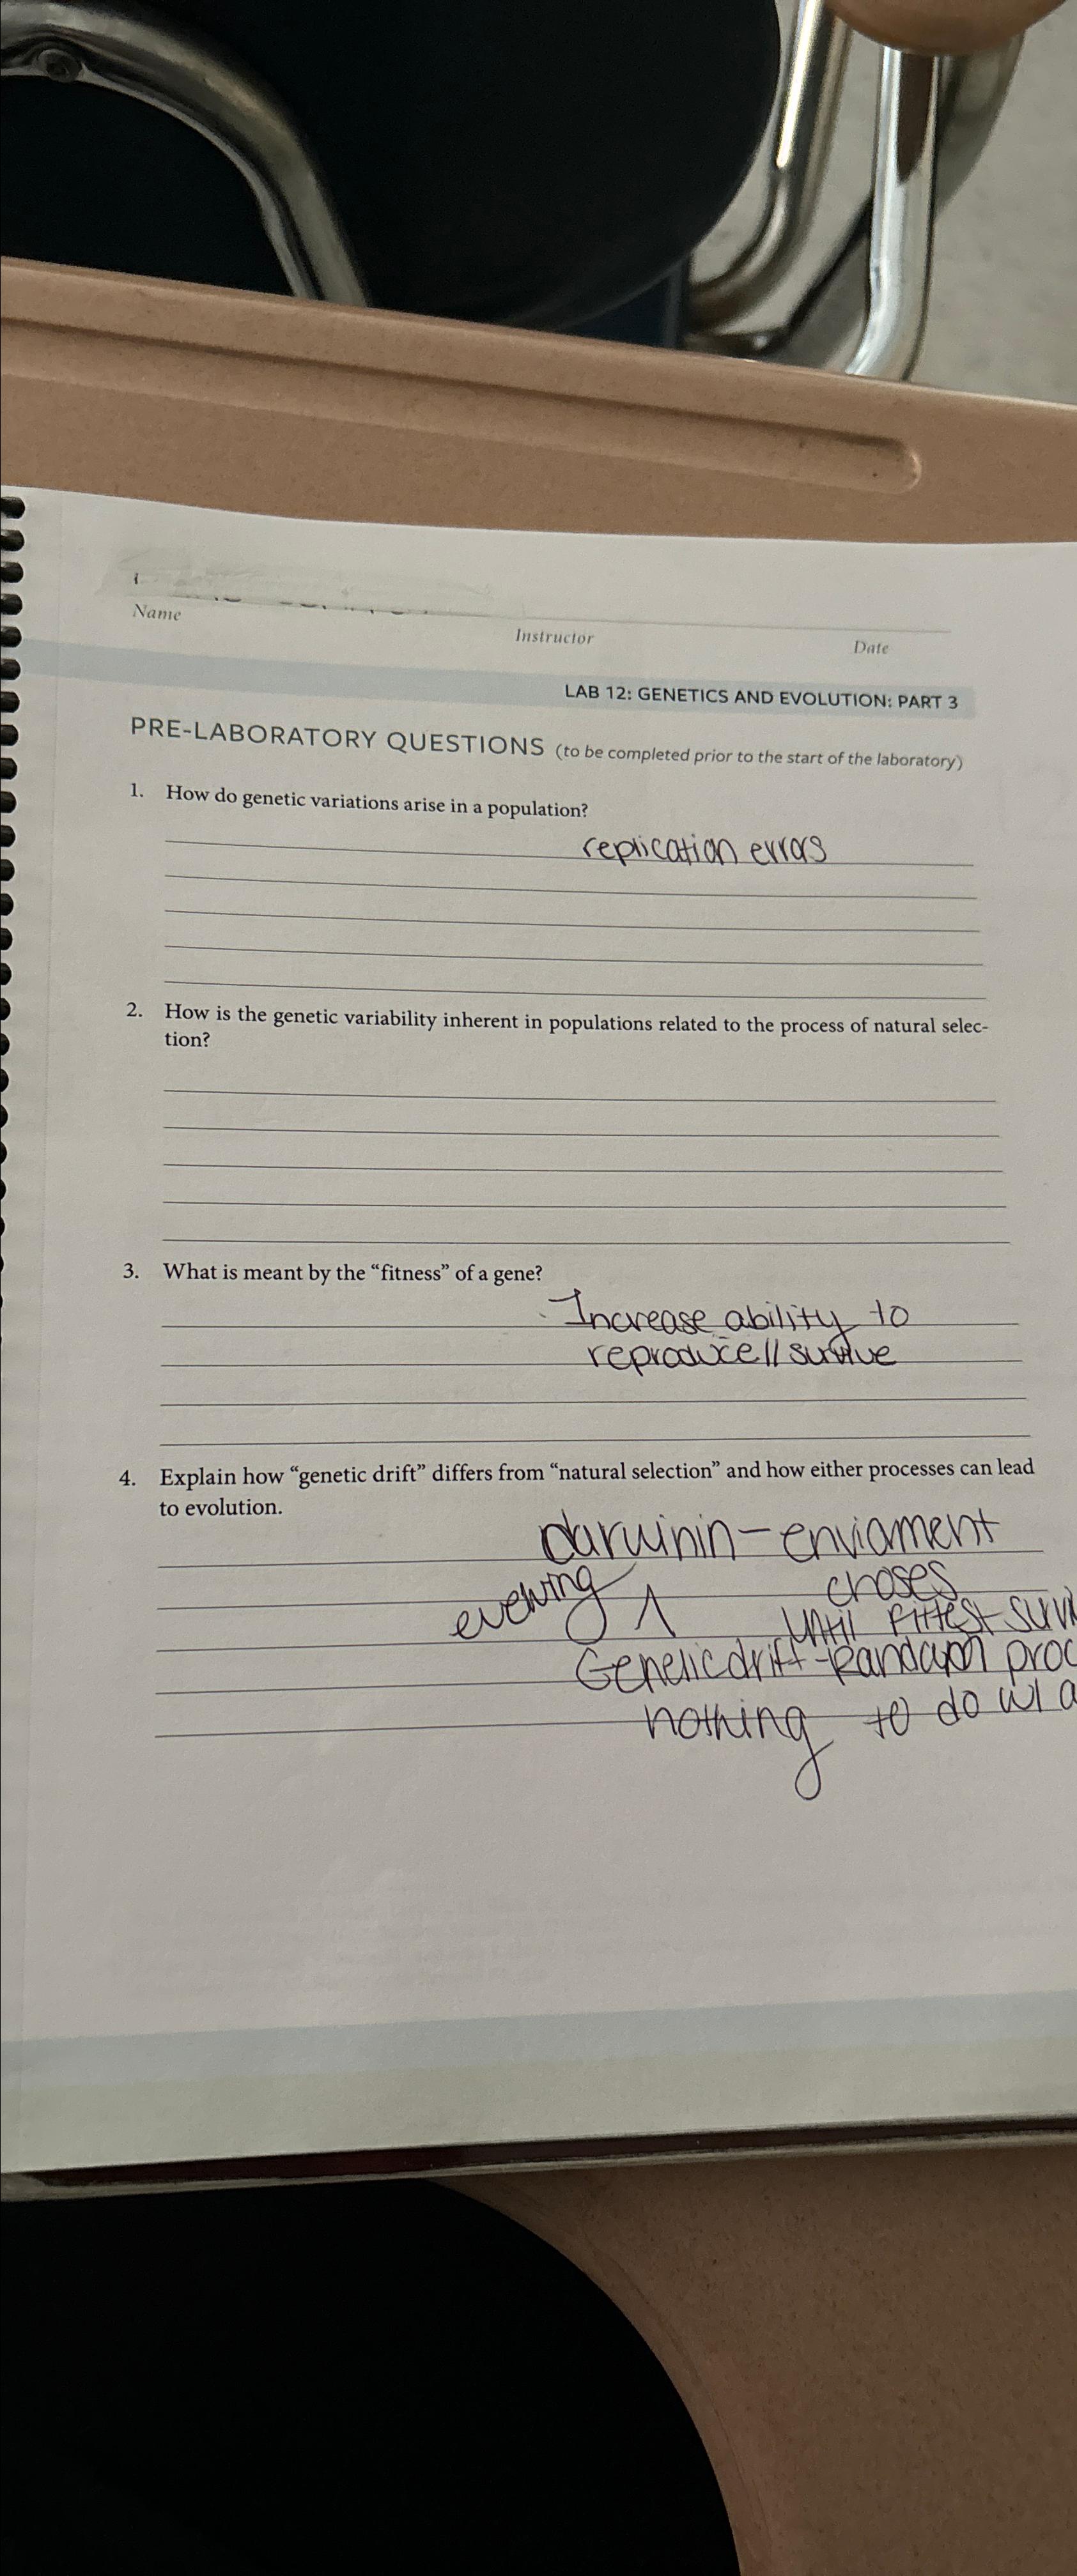 Name
Instructor
Date
LAB 12: GENETICS AND EVOLUTION: PART 3
PRE-LABORATORY QUESTIONS (to be completed prior to the start of the laboratory)
1. How do genetic variations arise in a population?
replication errors
2. How is the genetic variability inherent in populations related to the process of natural selec-
tion?
3. What is meant by the “fitness” of a gene?
Increase ability to
reproduce // survive
4. Explain how “genetic drift” differs from “natural selection” and how either processes can lead
to evolution.
darwinin - enviament
choses
until fittest survi
Genetic drift - Random proc
nothing to do w/ a